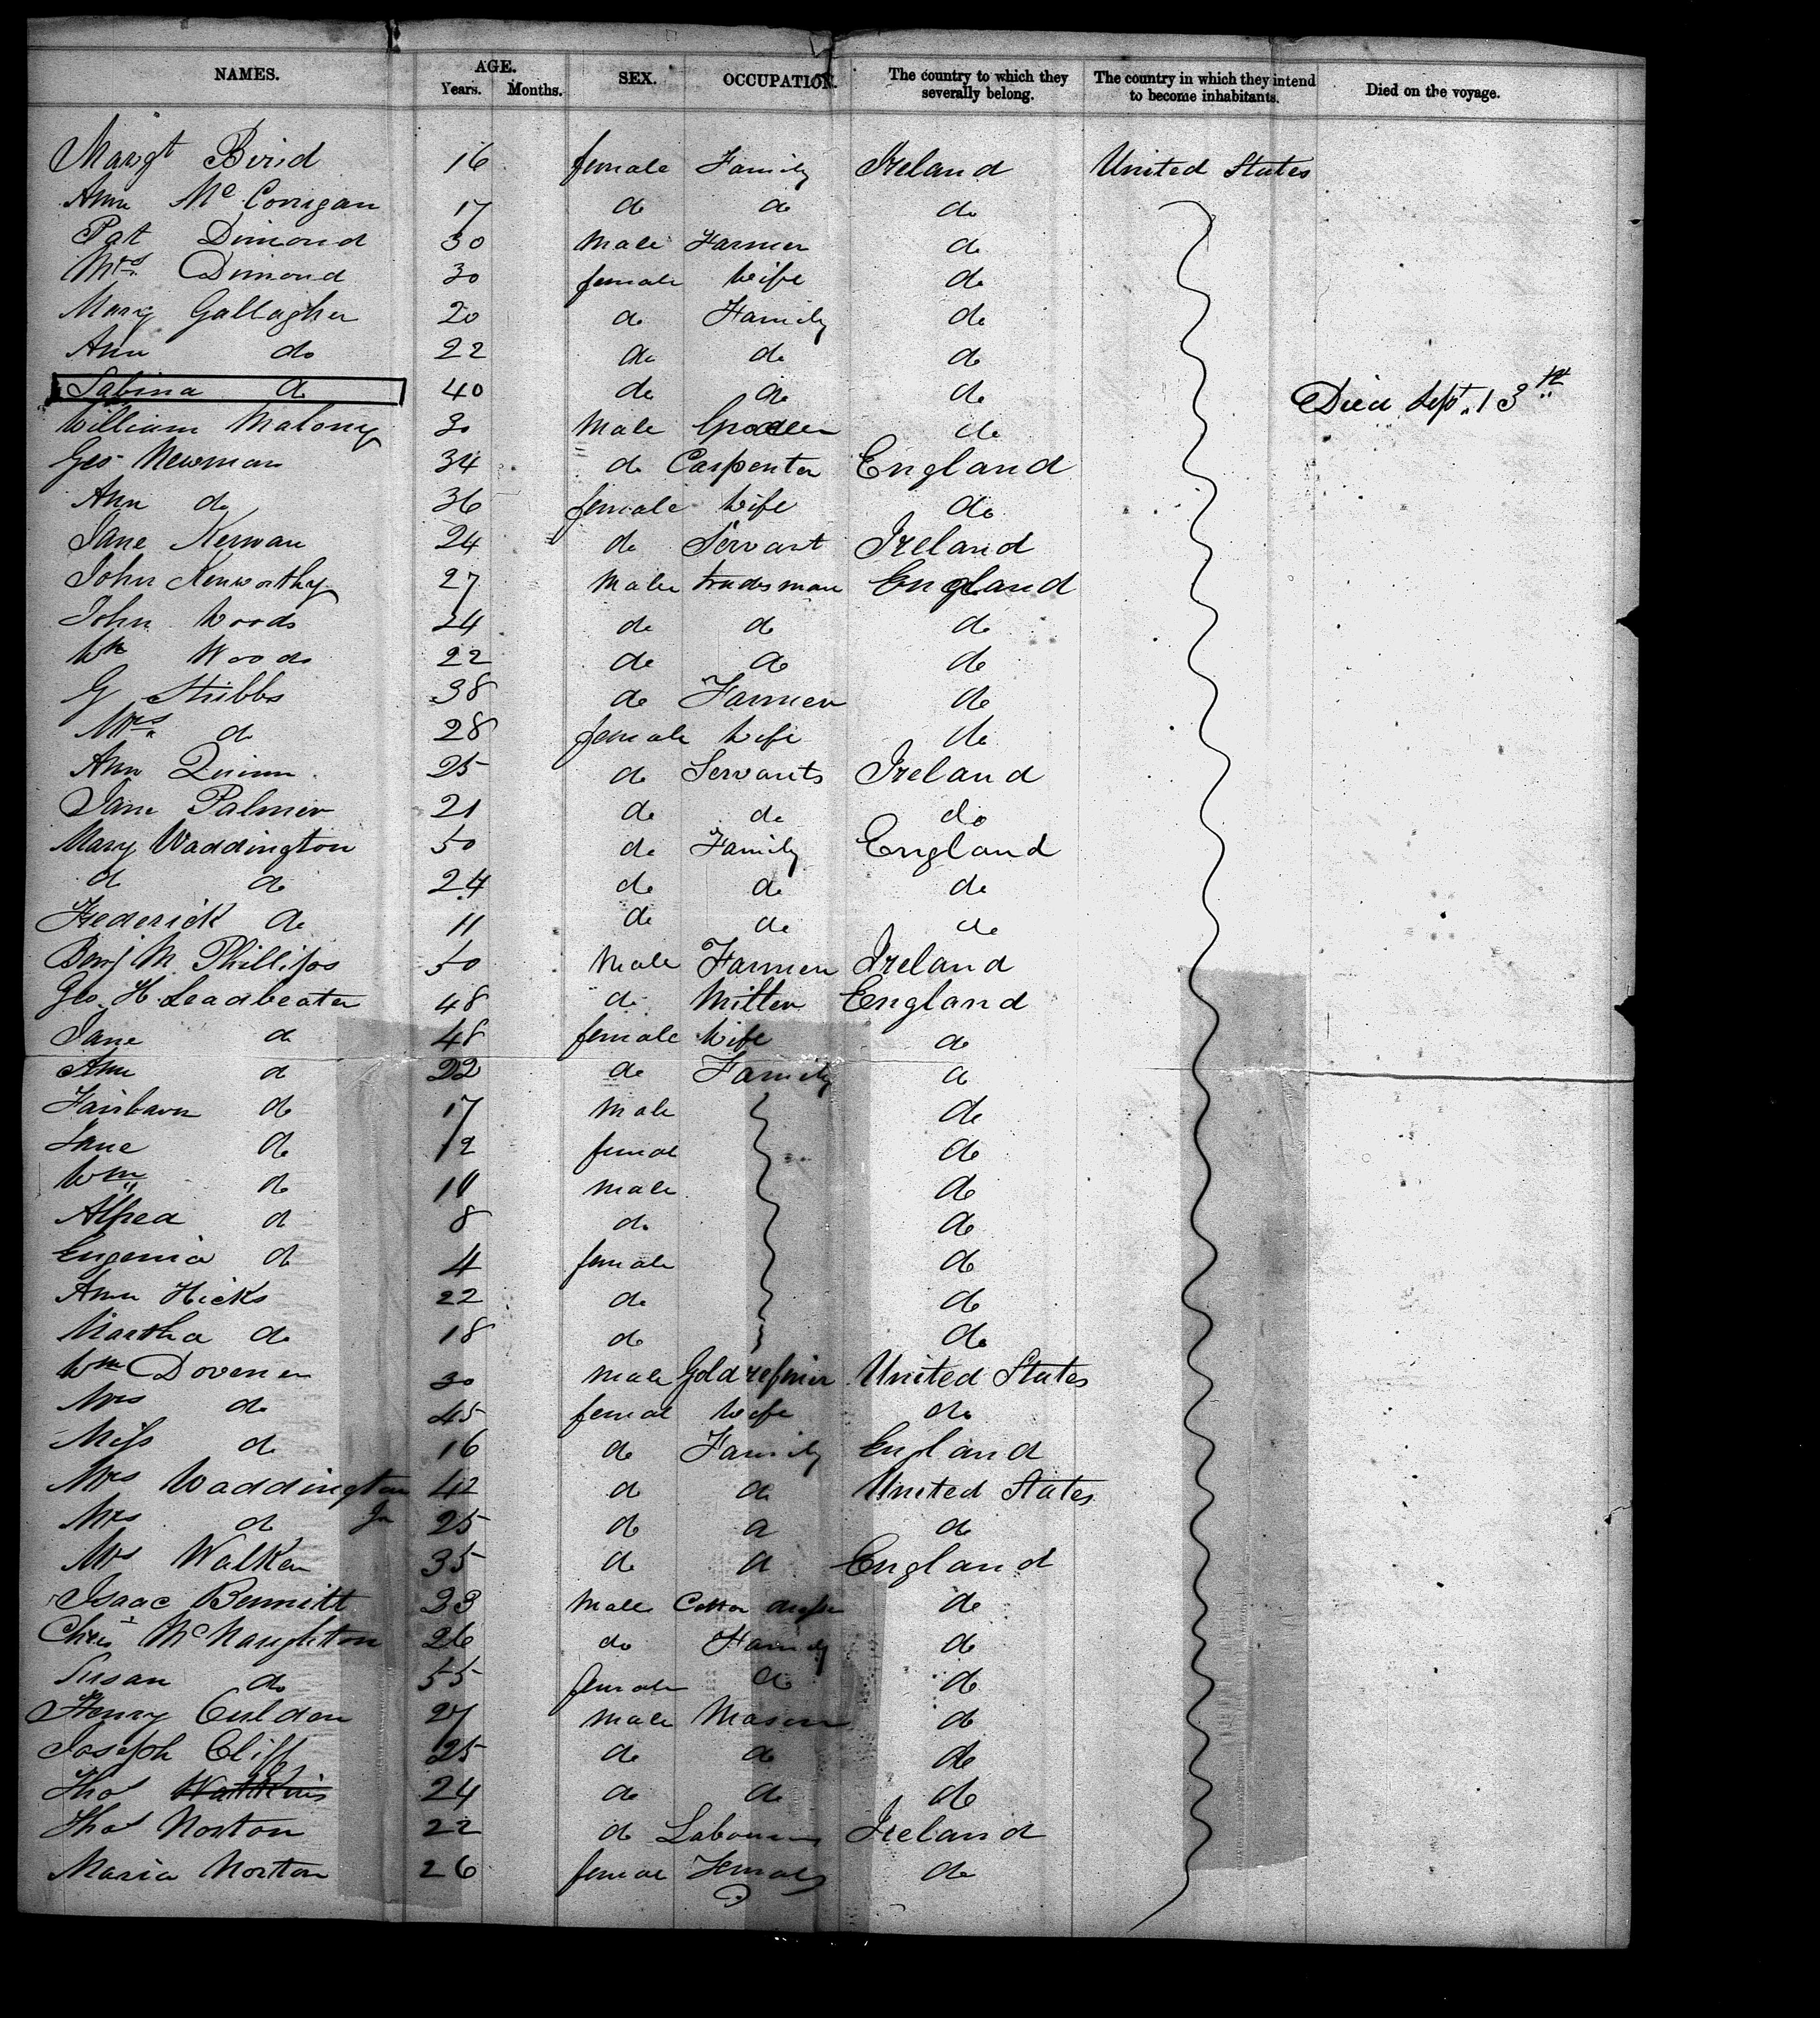 NAMES. AGE. Years. Months. SEX. OCCUPATION. The country to which they severally belong. The country in which they intend to become inhabitants. Died on the voyage.
Margt Bird 16 female Family Ireland United States
Ann Mc Corrigan 17 do do do
Pat Dimond 30 Male Farmer do
Mrs Dimond 30 female Wife do
Mary Gallagher 20 do Family do
Ann do 22 do do do
Sabina do 40 do do do Died Sept. 13th
William Malony 30 Male do
Geo Newman 34 do Carpenter England
Ann do 36 female Wife do
Jane Kerwan 24 do Servant Ireland
John Kenworthy 27 Male tradesman England
John Woods 24 do do do
Wm Woods 22 do do do
G Stubbs 38 do Farmer do
Mrs do 28 female Wife do
Ann Quinn 25 do Servants Ireland
Jane Palmer 21 do do do
Mary Waddington 50 do Family England
do do 24 do do do
Frederick do 11 do do do
Benj M Phillips 50 Male Farmer Ireland
Geo. H. Leadbeater 48 do Miller England
Jane do 48 female Wife do
Ann do 22 do Family do
Fairbarn do 17 Male do
Jane do 12 femal do
Wm do 10 Male do
Alfred do 8 do do
Eugenia do 4 female do
Ann Hicks 22 do do
Martha do 18 do do
Wm Dovener 30 Male Gold refiner United States
Mrs do 45 femal Wife do
Miss do 16 do Family England
Mrs Waddington 42 do do United States
Mrs do Jn 25 do do do
Mrs Walker 35 do do England
Isaac Bennett 23 Male Cotton do
Chris Mc Naughton 26 do Family do
Susan do 55 female do do
Henry Culden 27 Male Mason do
Joseph Cliff 25 do do do
Thos Watkins 24 do do do
Thos Norton 22 do Labourer Ireland
Maria Norton 26 femal do